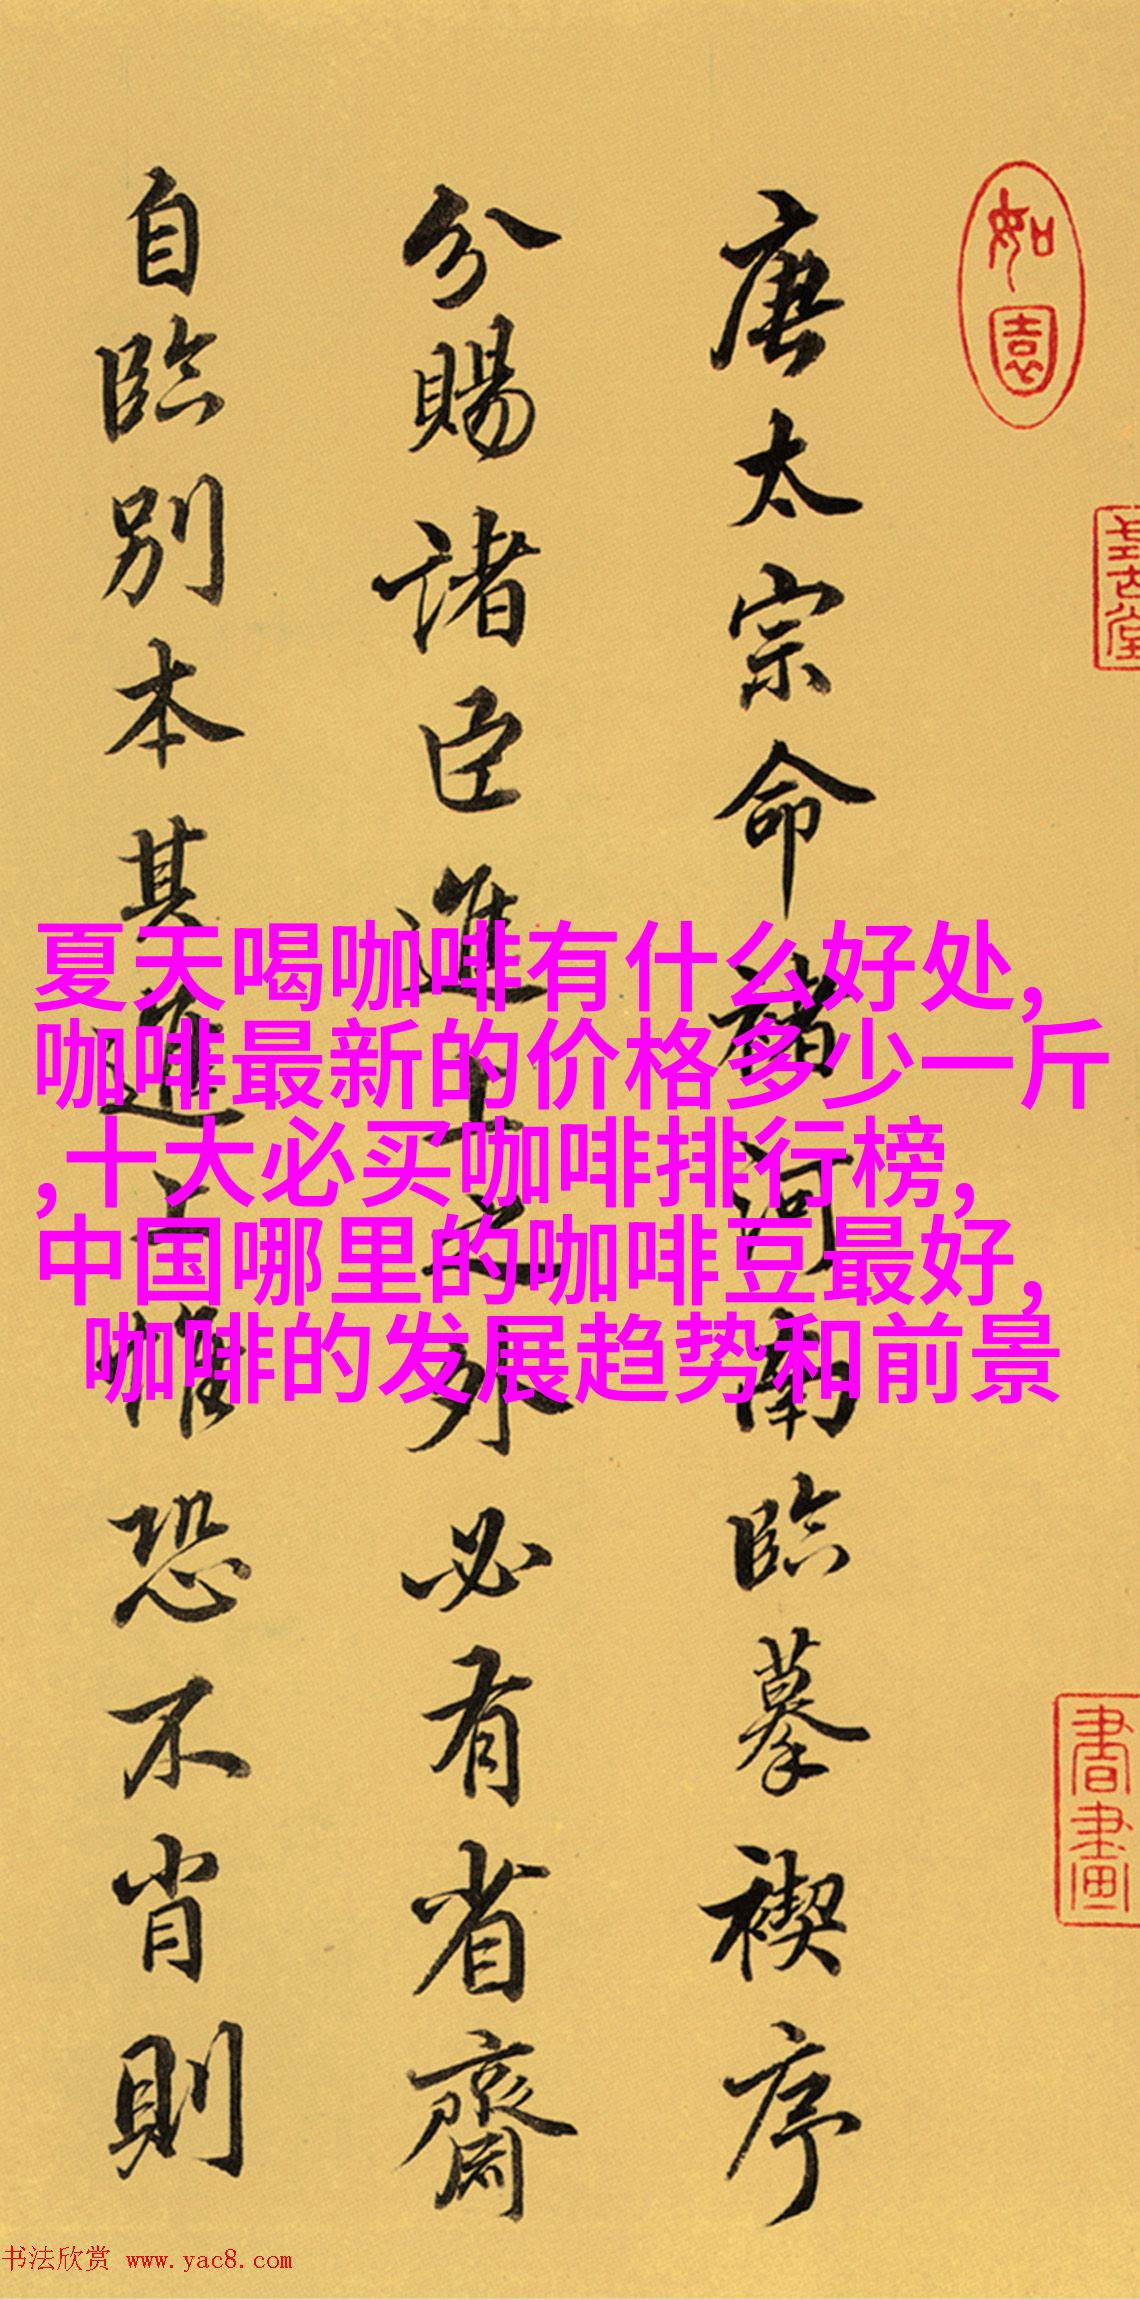 如園
書畫
唐太宗命褚河南臨摹禊序
分賜諸臣進上之外必有省齋
自臨別本其進上惟恐不肖則
夏天喝咖啡有什么好处,
咖啡最新的价格多少一斤
,十大必买咖啡排行榜,
中国哪里的咖啡豆最好,
咖啡的发展趋势和前景
书法欣赏 www.yac8.com